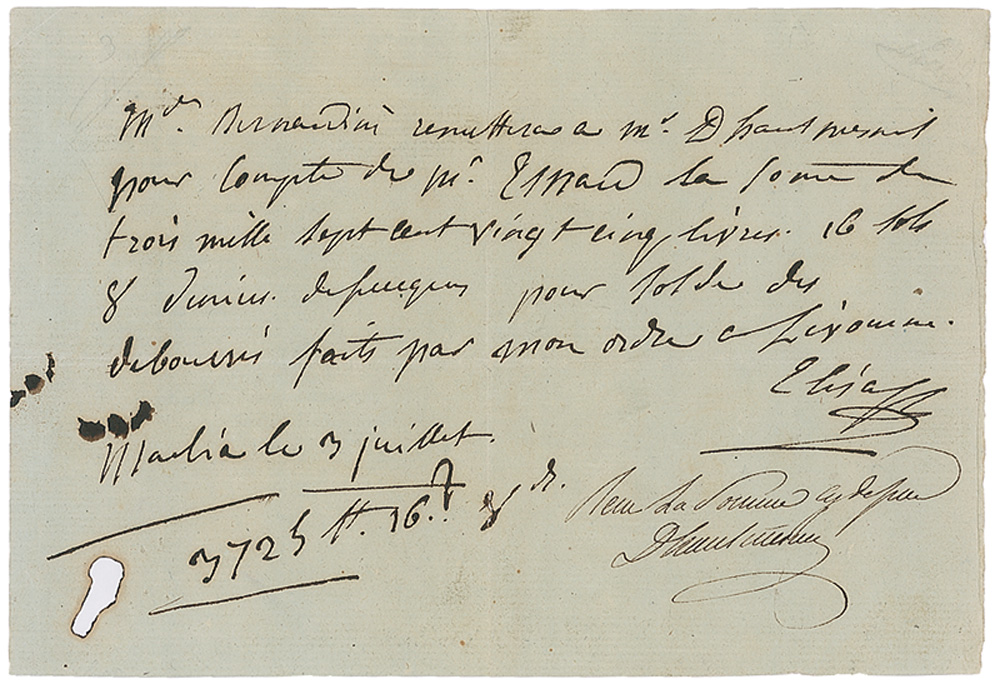 Md. Bernardini remettera a Mr. Dhautmesnil
pour Compte de Mr. Eynard la somme de
trois mille sept cent vingt cinq livres. 16 sols
8 deniers. de lucques pour solde des
deboursés faits par mon ordre a Livourne.
Elisa
Marlia le 3 juillet.
3725 tt. 16. s 8 d.
Reçu La Somme cy dessus
Dhautmesnil